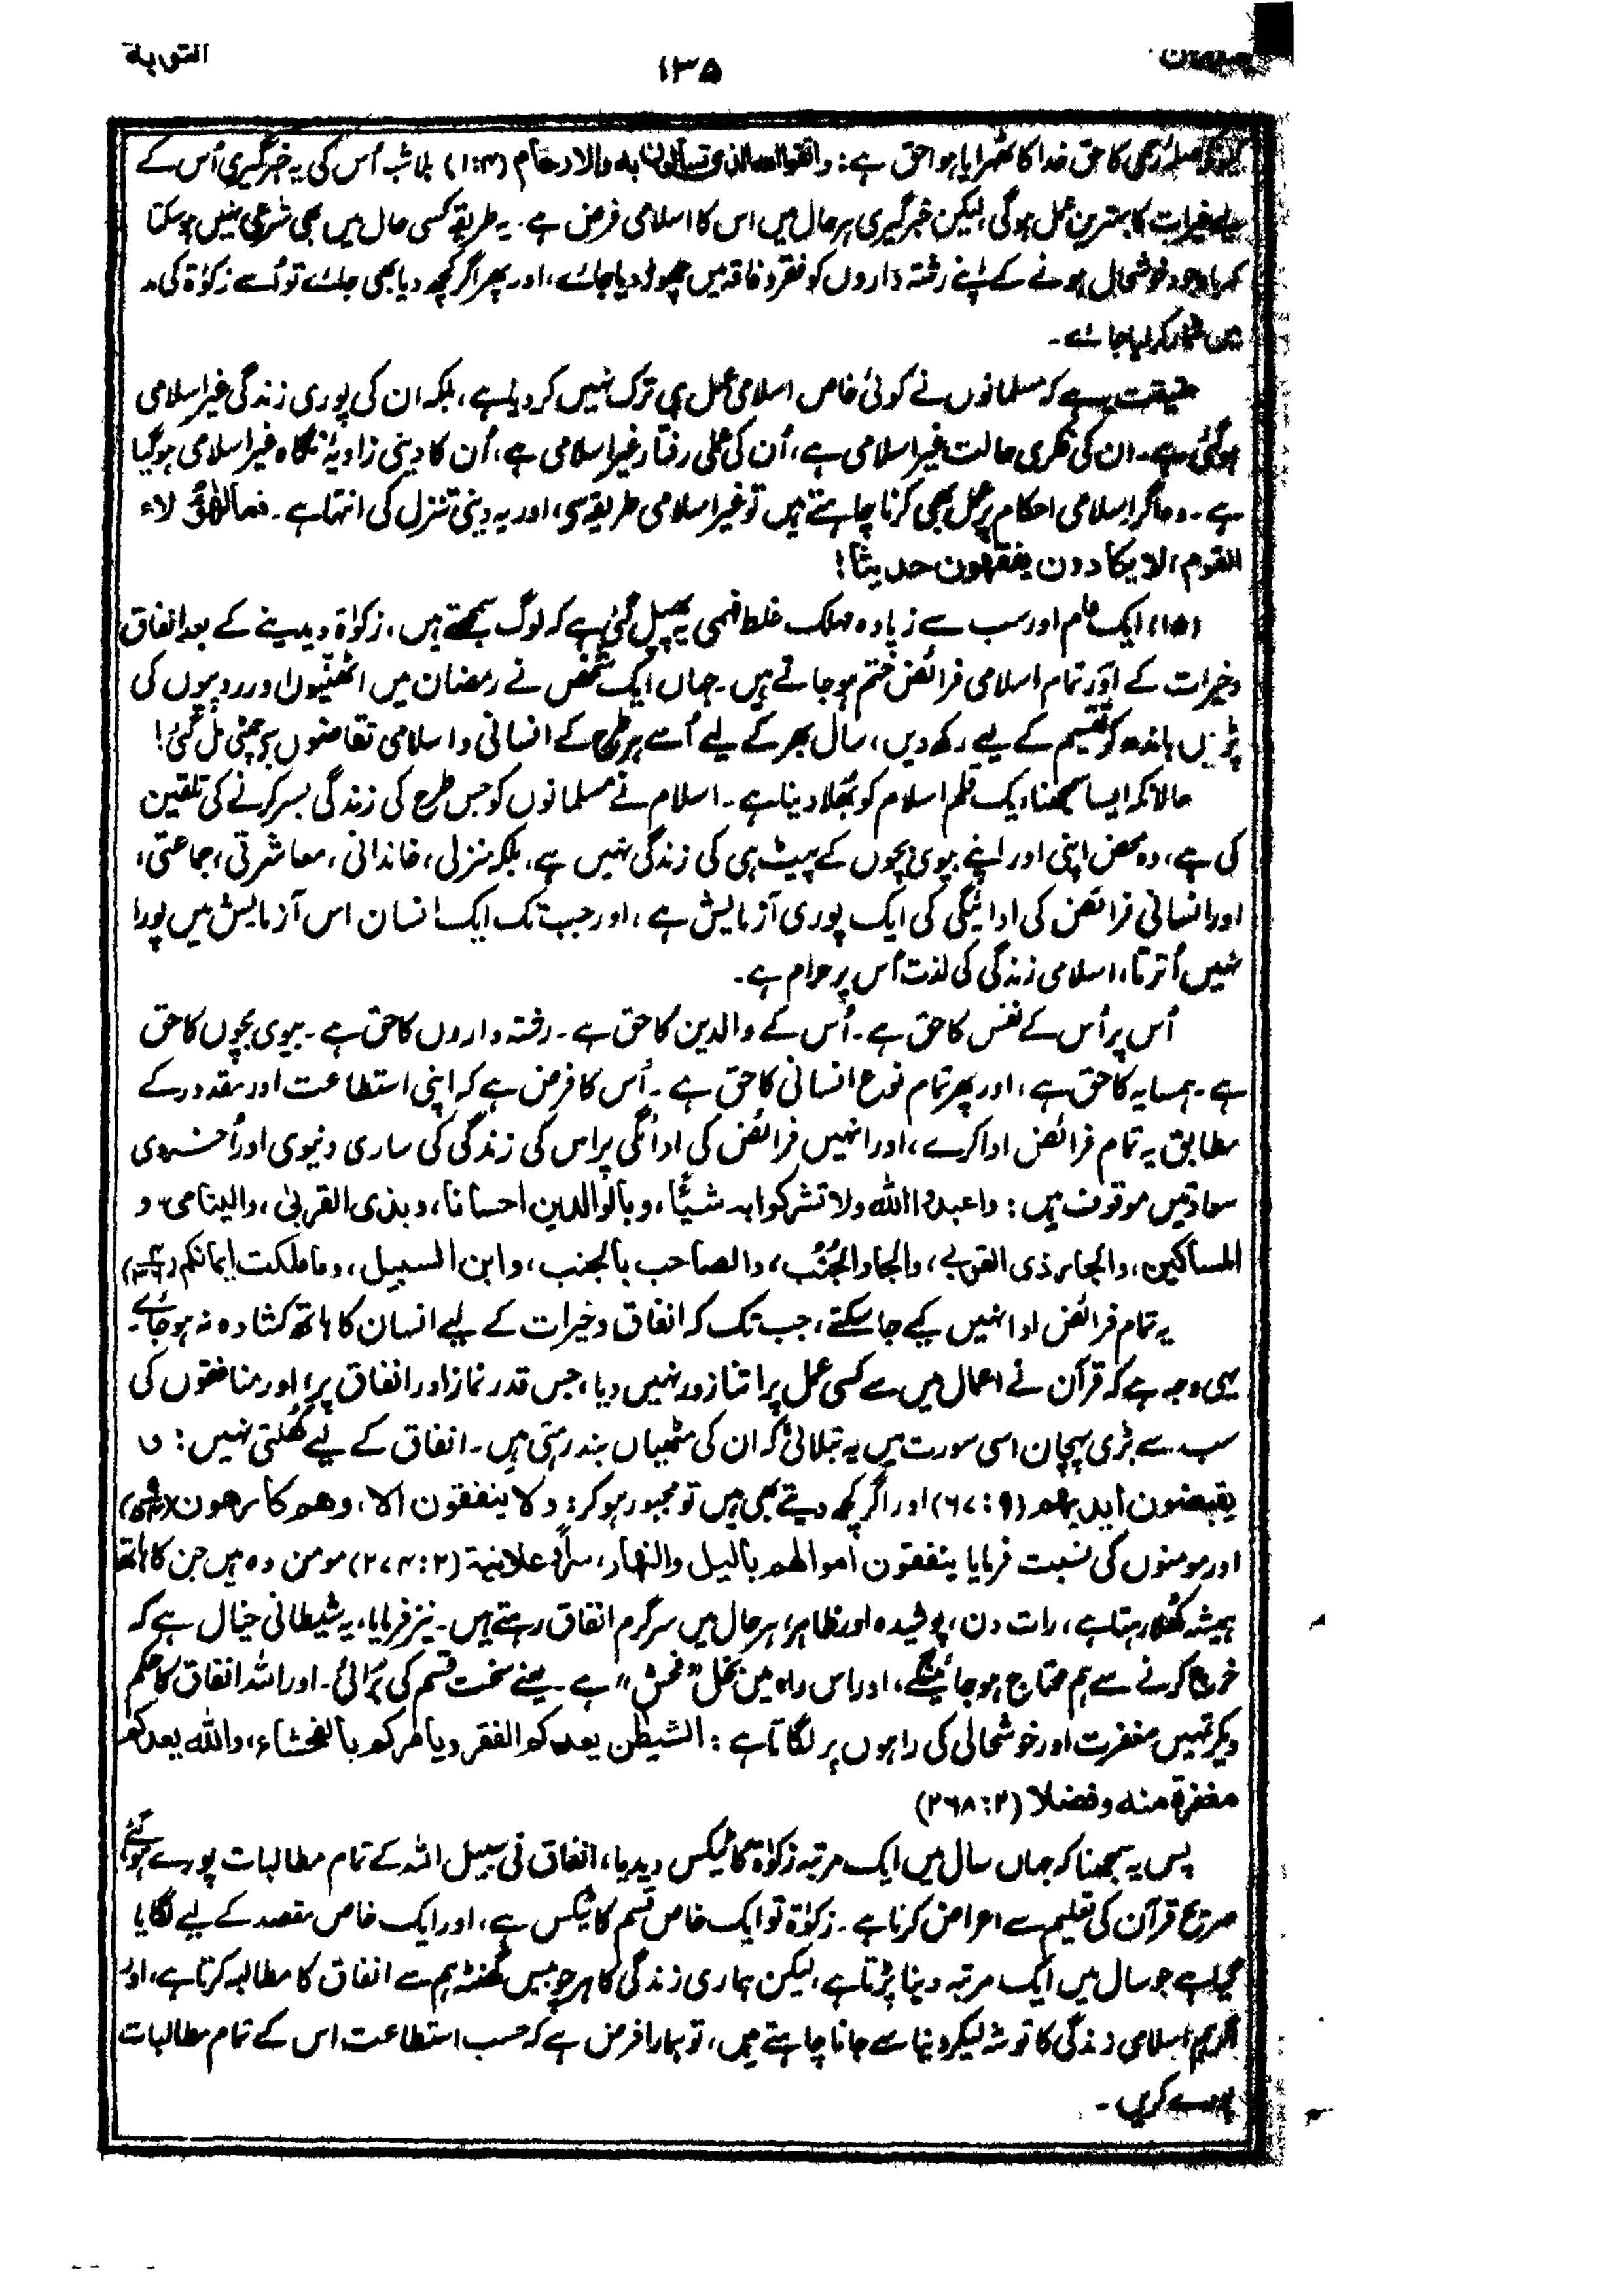 التوبة
۱۳۵
صلہ رحمی کا حق خدا کا ٹھہرایا ہوا حق ہے: واتقوا الله الذی تساءلون به والارحام (۱:۴) بلاشبہ اُس کی یہ خبرگیری اُس کے
لیے خیرات کا بہترین عمل ہوگی، لیکن خبرگیری ہر حال میں اس کا اسلامی فرض ہے۔ یہ طریقہ کسی حال میں بھی شرعی نہیں ہو سکتا
کہ باوجود خوشحال ہونے کے اپنے رشتہ داروں کو فقر و فاقہ میں چھوڑ دیا جائے، اور پھر اگر کچھ دیا بھی جائے تو اُسے زکوٰۃ کی مد
میں شمار کر لیا جائے۔
حقیقت یہ ہے کہ مسلمانوں نے کوئی خاص اسلامی عمل ہی ترک نہیں کر دیا ہے، بلکہ ان کی پوری زندگی غیر اسلامی
ہو گئی ہے۔ ان کی فکری حالت غیر اسلامی ہے، اُن کی عملی رفتار غیر اسلامی ہے، اُن کا دینی زاویۂ نگاہ غیر اسلامی ہو گیا
ہے۔ وہ اگر اسلامی احکام پر عمل بھی کرنا چاہتے ہیں تو غیر اسلامی طریقہ سے، اور یہ دینی تنزل کی انتہا ہے۔ فمال هٰؤلاء
القوم، لا يكادون يفقهون حديثا!
(۱۵) ایک عام اور سب سے زیادہ مہلک غلط فہمی یہ پھیل گئی ہے کہ لوگ سمجھتے ہیں، زکوٰۃ دیدینے کے بعد انفاق
و خیرات کے اور تمام اسلامی فرائض ختم ہو جاتے ہیں۔ جہاں ایک شخص نے رمضان میں اٹھنیوں اور روپیوں کی
پڑیاں باندھ کر تقسیم کے لیے رکھ دیں، سال بھر کے لیے اُسے ہر طرح کے انسانی و اسلامی تقاضوں پر چھٹی مل گئی!
حالانکہ ایسا سمجھنا یک قلم اسلام کو بھلا دینا ہے۔ اسلام نے مسلمانوں کو جس طرح کی زندگی بسر کرنے کی تلقین
کی ہے، وہ محض اپنی اور اپنے بیوی بچوں کے پیٹ ہی کی زندگی نہیں ہے، بلکہ منزلی، خاندانی، معاشرتی، جماعتی،
اور انسانی فرائض کی ادائیگی کی ایک پوری آزمایش ہے، اور جب تک ایک انسان اس آزمایش میں پورا
نہیں اُترتا، اسلامی زندگی کی لذت اُس پر حرام ہے۔
اُس پر اُس کے نفس کا حق ہے۔ اُس کے والدین کا حق ہے۔ رشتہ داروں کا حق ہے۔ بیوی بچوں کا حق
ہے۔ ہمسایہ کا حق ہے، اور پھر تمام نوع انسانی کا حق ہے۔ اُس کا فرض ہے کہ اپنی استطاعت اور مقدور کے
مطابق یہ تمام فرائض ادا کرے، اور انہیں فرائض کی ادائگی پر اس کی زندگی کی ساری دنیوی اور اُخروی
سعادتیں موقوف ہیں: واعبدوا الله ولا تشركوا به شيئًا، وبالوالدين احسانا، وبذى القربى، واليتامى، و
المساكين، والجار ذى القربى، والجار الجُنُب، والصاحب بالجنب، وابن السبيل، وما ملكت ايمانكم (۳۶:۴)
یہ تمام فرائض ادا نہیں کیے جا سکتے، جب تک کہ انفاق و خیرات کے لیے انسان کا ہاتھ کشادہ نہ ہو جائے۔
یہی وجہ ہے کہ قرآن نے اعمال میں سے کسی عمل پر اتنا زور نہیں دیا، جس قدر نماز اور انفاق پر، اور منافقوں کی
سب سے بڑی پہچان اسی سورت میں یہ بتلائی کہ ان کی مٹھیاں بند رہتی ہیں۔ انفاق کے لیے کُھلتی نہیں: و
يقبضون ايديهم (۶۷:۹) اور اگر کچھ دیتے بھی ہیں تو مجبور ہو کر: ولا ينفقون الا، وهم كارهون (۵۴:۹)
اور مومنوں کی نسبت فرمایا ينفقون اموالهم بالليل والنهار، سرًّا وعلانية (۲۷۴:۲) مومن وہ ہیں جن کا ہاتھ
ہمیشہ کُھلا رہتا ہے، رات دن، پوشیدہ اور ظاہر، ہر حال میں سرگرم انفاق رہتے ہیں۔ نیز فرمایا، یہ شیطانی خیال ہے کہ
خرچ کرنے سے ہم محتاج ہو جائینگے، اور اس راہ میں بخل ”فحش“ ہے۔ یعنے سخت قسم کی بُرائی۔ اور اللہ انفاق کا حکم
دیکر تمہیں مغفرت اور خوشحالی کی راہوں پر لگاتا ہے: الشيطٰن يعدكم الفقر ويامركم بالفحشاء، والله يعدكم
مغفرة منه وفضلا (۲۶۸:۲)
پس یہ سمجھنا کہ جہاں سال میں ایک مرتبہ زکوٰۃ کا ٹیکس دیدیا، انفاق فی سبیل اللہ کے تمام مطالبات پورے ہو گئے،
صریح قرآن کی تعلیم سے اعراض کرنا ہے۔ زکوٰۃ تو ایک خاص قسم کا ٹیکس ہے، اور ایک خاص مقصد کے لیے لگایا
گیا ہے جو سال میں ایک مرتبہ دینا پڑتا ہے، لیکن ہماری زندگی کا ہر چوبیس گھنٹہ ہم سے انفاق کا مطالبہ کرتا ہے، اور
اگر ہم اسلامی زندگی کا توشہ لیکر دنیا سے جانا چاہتے ہیں، تو ہمارا فرض ہے کہ حسب استطاعت اس کے تمام مطالبات
پورے کریں۔